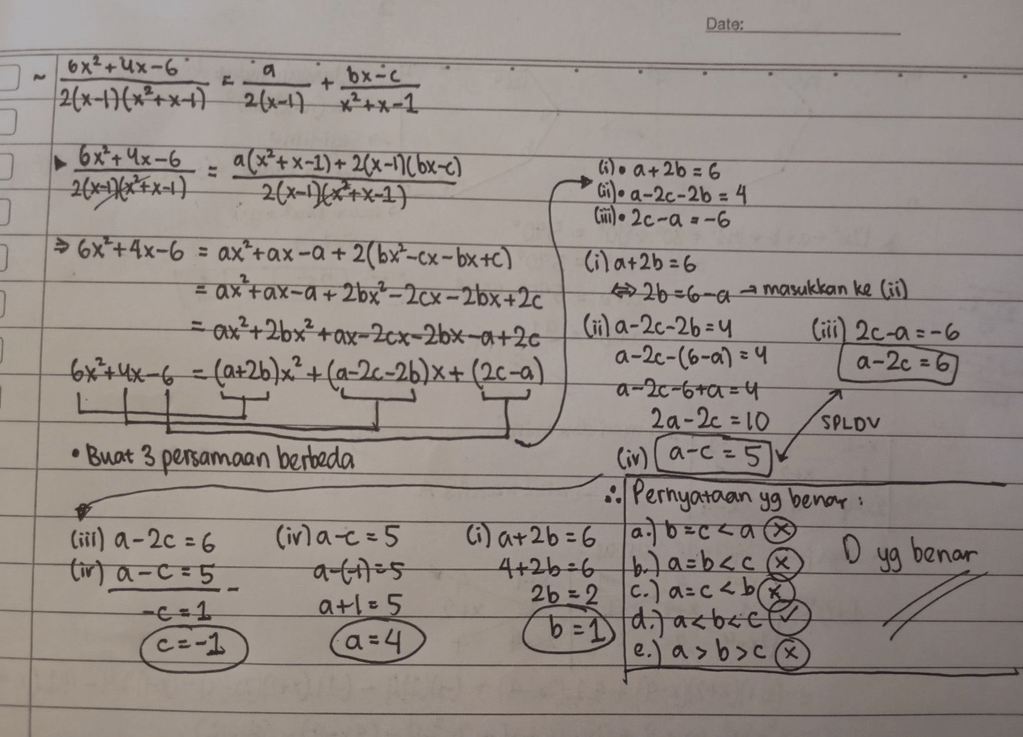 Date:
~ 6x²+4x-6 / 2(x-1)(x²+x-1) = a / 2(x-1) + bx-c / x²+x-1
▸ 6x²+4x-6 / 2(x-1)(x²+x-1) = a(x²+x-1)+2(x-1)(bx-c) / 2(x-1)(x²+x-1)
⇒ 6x²+4x-6 = ax²+ax-a+2(bx²-cx-bx+c)
= ax²+ax-a+2bx²-2cx-2bx+2c
= ax²+2bx²+ax-2cx-2bx-a+2c
6x²+4x-6 = (a+2b)x²+(a-2c-2b)x+(2c-a)
• Buat 3 persamaan berbeda
(i)• a+2b=6
(ii)• a-2c-2b=4
(iii)• 2c-a=-6
(i) a+2b=6
⇔ 2b=6-a → masukkan ke (ii)
(ii) a-2c-2b=4
a-2c-(6-a)=4
a-2c-6+a=4
2a-2c=10
(iv) a-c=5
(iii) 2c-a=-6
a-2c=6
SPLDV
(iii) a-2c=6
(iv) a-c=5 -
-c=1
c=-1
(iv) a-c=5
a-(-1)=5
a+1=5
a=4
(i) a+2b=6
4+2b=6
2b=2
b=1
∴ Pernyataan yg benar:
a.) b=c<a ⓧ
b.) a=b<c ⓧ
c.) a=c<b ⓧ
d.) a<b<c ✓
e.) a>b>c ⓧ
D yg benar